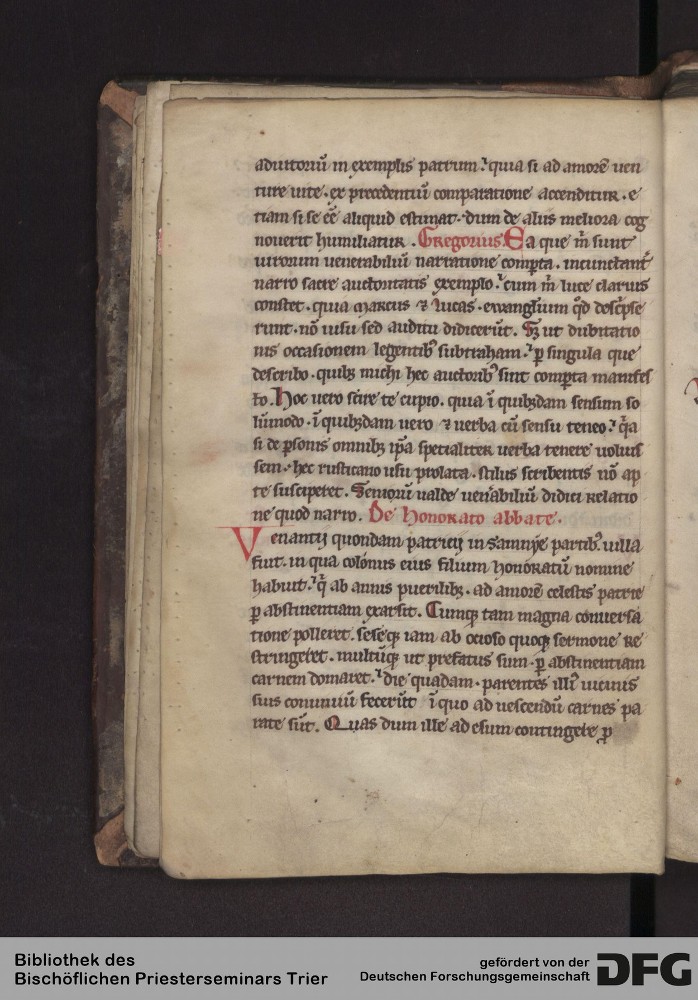 adiutoriū in exemplis patrum. quia si ad amorē uen
ture uite. ex precedentiū comparatione accenditur. e
tiam si se eē aliquid estimat. dum de aliis meliora cog
nouerit humiliatur. Gregorius Ea que m̄ sunt
uirorum uenerabiliū narratione comꝑta. incunctant᷑
narro sacre auctoritatis exemplo. cum m̄ luce clarius
constet. quia marcus ⁊ lucas. ewanglium qd̄ descⁱpse
runt. nō uisu sed auditu didicerūt. Sꝫ ut dubitatio
nis occasionem legentibꝰ subtraham. ꝑ singula que
describo. quibꝫ michi hec auctoribꝰ sint comꝑta manifes
to. Hoc uero scire te cupio. quia ī quibꝫdam sensum so
lūmodo. ī quibꝫdam uero ⁊ uerba cū sensu teneo. qᷓa
si de ꝑsonis omnibꝫ ip̄a specialiter uerba tenere uoluis
sem. hec rusticano usu prolata. stilus scribentis nō ap
te susciperet. Seniorū ualde uen̄abiliū didici relatio
ne quod narro. De Honorato abbate.
Venantij quondam patricij in samnye partibꝰ uilla
fuit. in qua colonus eius filium honoratū nomine
habuit. qͥ ab annis puerilibꝫ. ad amorē celestis patrie
ꝑ abstinentiam exarsit. Cumqꝫ tam magna conuersa
tione polleret. seseqꝫ iam ab ocioso quoqꝫ sermone re
stringeret. multūqꝫ ut prefatus sum. ꝑ abstinentiam
carnem domaret. die quadam. parentes illiꝰ uicinis
suis conuiuiū fecerūt ī quo ad uescendū carnes pa
rate sūt. Quas dum ille ad esum contingere ꝑ
Bibliothek des
Bischöflichen Priesterseminars Trier
gefördert von der
Deutschen Forschungsgemeinschaft
DFG